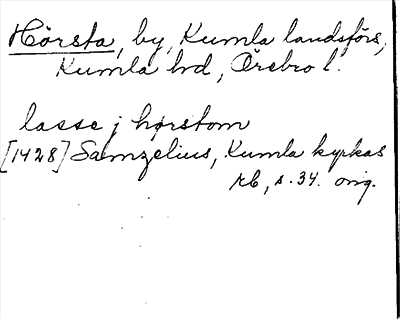 Hörsta, by, Kumla landsförs,
Kumla hd, Örebro l.
lasse j hørstom
[1428] Samzelius, Kumla kyrkas
rb, s. 34. orig.